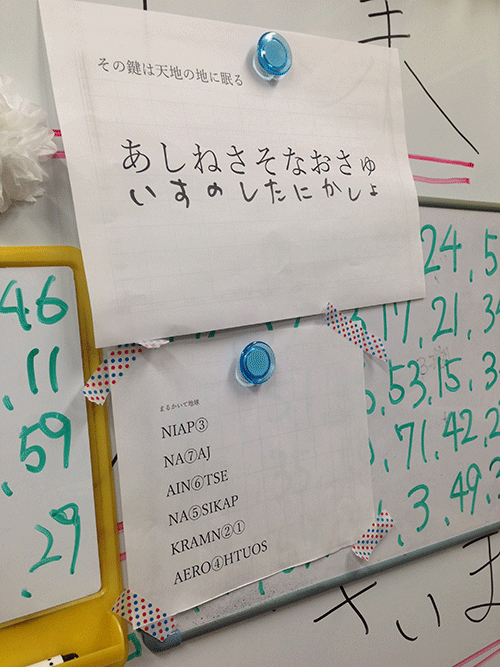 その鍵は天地の地に眠る
あしねさそなおさゅ
いすのしたにかしょ
まるかいて地球
NIAP③
NA⑦AJ
AIN⑥TSE
NA⑤SIKAP
KRAMN②①
AERO④HTUOS
46
, 11
, 59
. 29
24, 5
17, 21, 3
, 53, 15, 3
, 71, 42, 2
, 3, 49, 3
いま